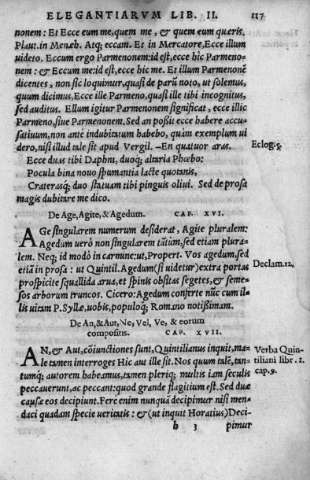 ELEGANTIARVM LIB. II. 117
nonem: Et Ecce eum me, quem me, & quem eum quæris.
Plaut. in Menæh. Atq; eccam. Et in Mercatore, Ecce illum
uideto. Eccum ergo Parmenonem: id est, ecce hic Parmeno-
nem: & Eccum me: id est, ecce hic me. Et illum Parmenonē
dicentes, non sic loquimur, quasi de parū noto, ut solemus,
quum dicimus, Ecce ille Parmeno, quasi ille tibi incognitus,
sed auditus. Ellum igitur Parmenonem significat, ecce illic
Parmeno, siue Parmenonem. Sed an possit ecce habere accu-
satiuum, non ante indubitatum habebo, quàm exemplum ui
dero, nisi illud tale sit apud Vergil. —En quatuor aras. Eclog. 5.
Ecce duas tibi Daphni, duoq; altaria Phœbo:
Pocula bina nouo spumantia lacte quotanis,
Craterasq; duo statuam tibi pinguis oliui. Sed de prosa
magis dubitare me dico.
De Age, Agite, & Agedum. CAP. XVI.
AGe singularem numerum desiderat, Agite pluralem:
Agedum uerò non singularem tātùm, sed etiam plura-
lem. Neq; id modò in carmine: ut, Propert. Vos agedum, sed
etiā in prosa: ut Quintil. Agedum (si uidetur) extra portas Declam. 12.
prospicite squallida arua, et spinis obsitas segetes, & semes-
sos arborum truncos. Cicero: Agedum conferte nūc cum il-
lis uitam P. Syllæ, uobis, populoq; Romano notissimam.
De An, & Aut, Ne, Vel, Ve, & eorum
compositis. CAP. XVII.
AN, & Aut, cōiunctiones sunt, Quintilianus inquit, ma- Verba Quin-
le tamen interroges Hic aut ille sit. Nos quum talē, tan- tiliani libr. 1.
tumq; autorem habeamus, tamen pleriq; multis iam seculis cap. 9.
peccauerunt, ac peccant: quod grande flagitium est. Sed duæ
causæ eos decipiunt. Fere enim nunquā decipimur nisi men-
daci quadam specie ueritatis: & (ut inquit Horatius) Deci-
h 3 pimur